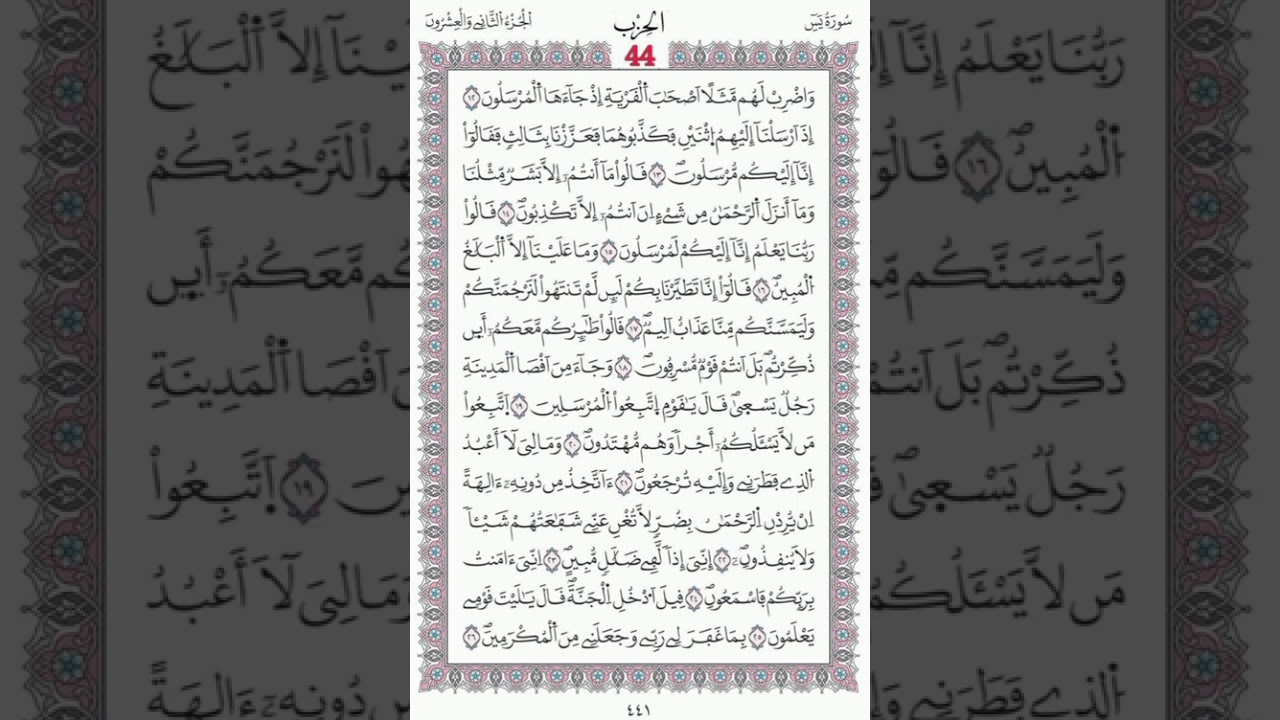 سُورَةُ يَسٓ
الحِزْب
الجُزْءُ الثَّانِي وَالْعِشْرُونَ
44
وَاضْرِبْ لَهُم مَّثَلًا اَصْحَٰبَ اَ۬لْقَرْيَةِ إِذْ جَآءَهَا اَ۬لْمُرْسَلُونَ ١٢
إِذَ اَرْسَلْنَآ إِلَيْهِمُ اُ۪ثْنَيْنِ فَكَذَّبُوهُمَا فَعَزَّزْنَا بِثَالِثٖ فَقَالُوٓاْ
إِنَّآ إِلَيْكُم مُّرْسَلُونَۖ ١٣ قَالُواْ مَآ أَنتُمُۥٓ إِلَّا بَشَرٞ مِّثْلُنَا
وَمَآ أَنزَلَ اَ۬لرَّحْمَٰنُ مِن شَےْءٍ اِنَ اَنتُمُۥٓ إِلَّا تَكْذِبُونَۖ ١٤ قَالُواْ
رَبُّنَا يَعْلَمُ إِنَّآ إِلَيْكُمْ لَمُرْسَلُونَ ١٥ وَمَا عَلَيْنَآ إِلَّا اَ۬لْبَلَٰغُ
اُ۬لْمُبِينُۖ ١٦ قَالُوٓاْ إِنَّا تَطَيَّرْنَا بِكُمْ لَئِن لَّمْ تَنتَهُواْ لَنَرْجُمَنَّكُمْ
وَلَيَمَسَّنَّكُم مِّنَّا عَذَابٌ اَلِيمٞۖ ١٧ قَالُواْ طَٰٓئِرُكُم مَّعَكُمُۥٓ أَئِن
ذُكِّرْتُمۖ بَلَ اَنتُمْ قَوْمٞ مُّسْرِفُونَۖ ١٨ وَجَآءَ مِنَ اَقْصَا اَ۬لْمَدِينَةِ
رَجُلٞ يَسْعَىٰۖ قَالَ يَٰقَوْمِ اِ۪تَّبِعُواْ اُ۬لْمُرْسَلِينَ ١٩ اَ۪تَّبِعُواْ
مَن لَّا يَسْـَٔلُكُمُۥٓ أَجْراٗ وَهُم مُّهْتَدُونَۖ ٢٠ وَمَالِىَ لَآ أَعْبُدُ
اُ۬لذِے فَطَرَنِے وَإِلَيْهِ تُرْجَعُونَۖ ٢١ ءَآتَّخِذُ مِن دُونِهِۦٓ ءَالِهَةً
اِنْ يُّرِدْنِ اِ۬لرَّحْمَٰنُ بِضُرّٖ لَّا تُغْنِ عَنِّے شَفَٰعَتُهُمْ شَيْـٔاٗ
وَلَا يُنقِذُونِۦٓۖ ٢٢ إِنِّىَ إِذاٗ لَّفِے ضَلَٰلٖ مُّبِينٍۖ ٢٣ اِنِّىَ ءَامَنتُ
بِرَبِّكُمْ فَاسْمَعُونِۖ ٢٤ قِيلَ اَ۟دْخُلِ اِ۬لْجَنَّةَۖ قَالَ يَٰلَيْتَ قَوْمِے
يَعْلَمُونَ ٢٥ بِمَا غَفَرَ لِے رَبِّے وَجَعَلَنِے مِنَ اَ۬لْمُكْرَمِينَۖ ٢٦
٤٤١